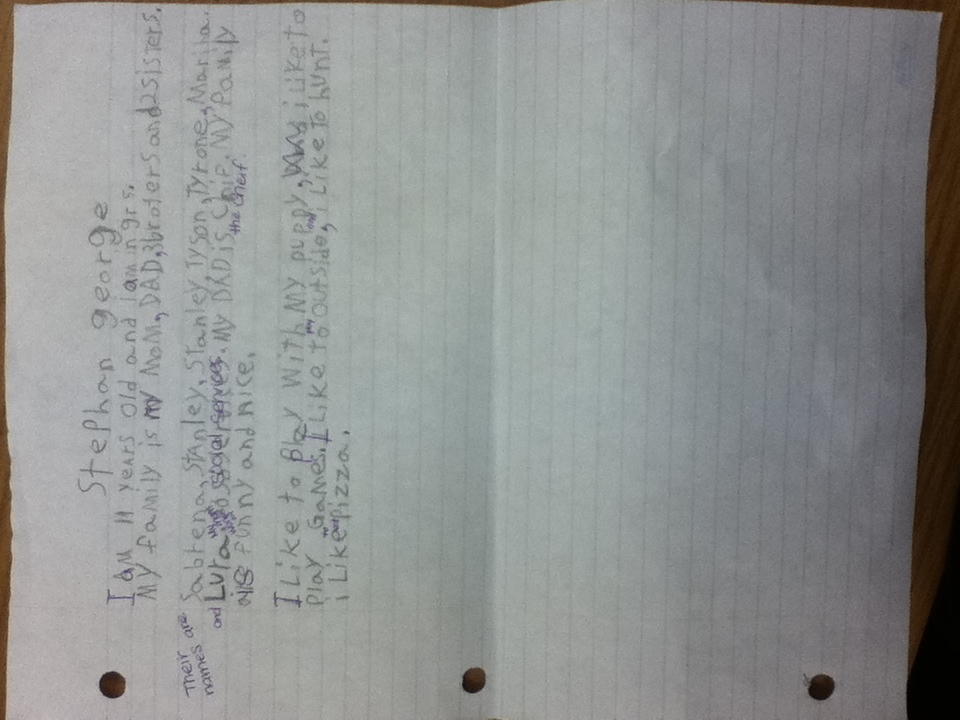 Stephan george
I am 11 years old and I am in gr 5.
My family is my MoM, DAD, 3 broters and 2 sisters.
Their names are Sabrena, StAnley, Stanley Tyson, Tyrone, Marilla.
and Lura social services. My DAD is Chif. My Family
the Cheif.
is funny and nice.
I Like to Play With My puppy, i Like to
play Games. I Like to play outside, and i Like To hunt.
i Like pizza.